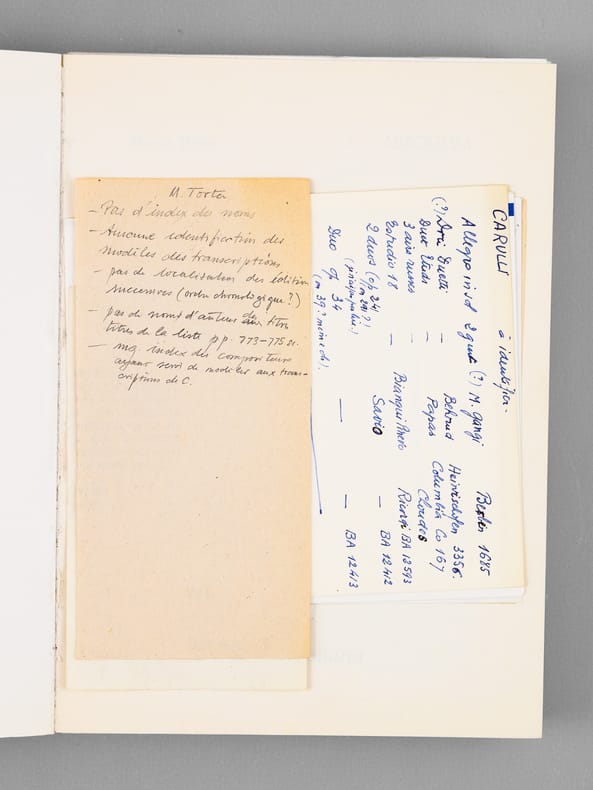 M. Torta
- Pas d'index des noms
- Aucune identification des
modèles des transcriptions
- pas de localisation des édition
successives (ordre chronologique?)
- pas de noms d'auteurs des titres
titres de la liste pp. 773-775 si.
- mq index des compositeurs
ayant servi de modèles aux trans-
criptions de C.
CARULLI à identifier.
Allegro in sol 2 guit (?) M. Gangi Berlin 1685
(?) Drei Duetti — Behrend Heinrichshofen 3356.
Duet Etude — Papas Columbia Co 167
3 airs russes
Estudio 18 — Bianqui Piñero Ricordi BA 12593
2 duos (op 24) Savio — BA 12412
(on 29?!
Duo op 34 — — BA 12413
(on 39? même dos!